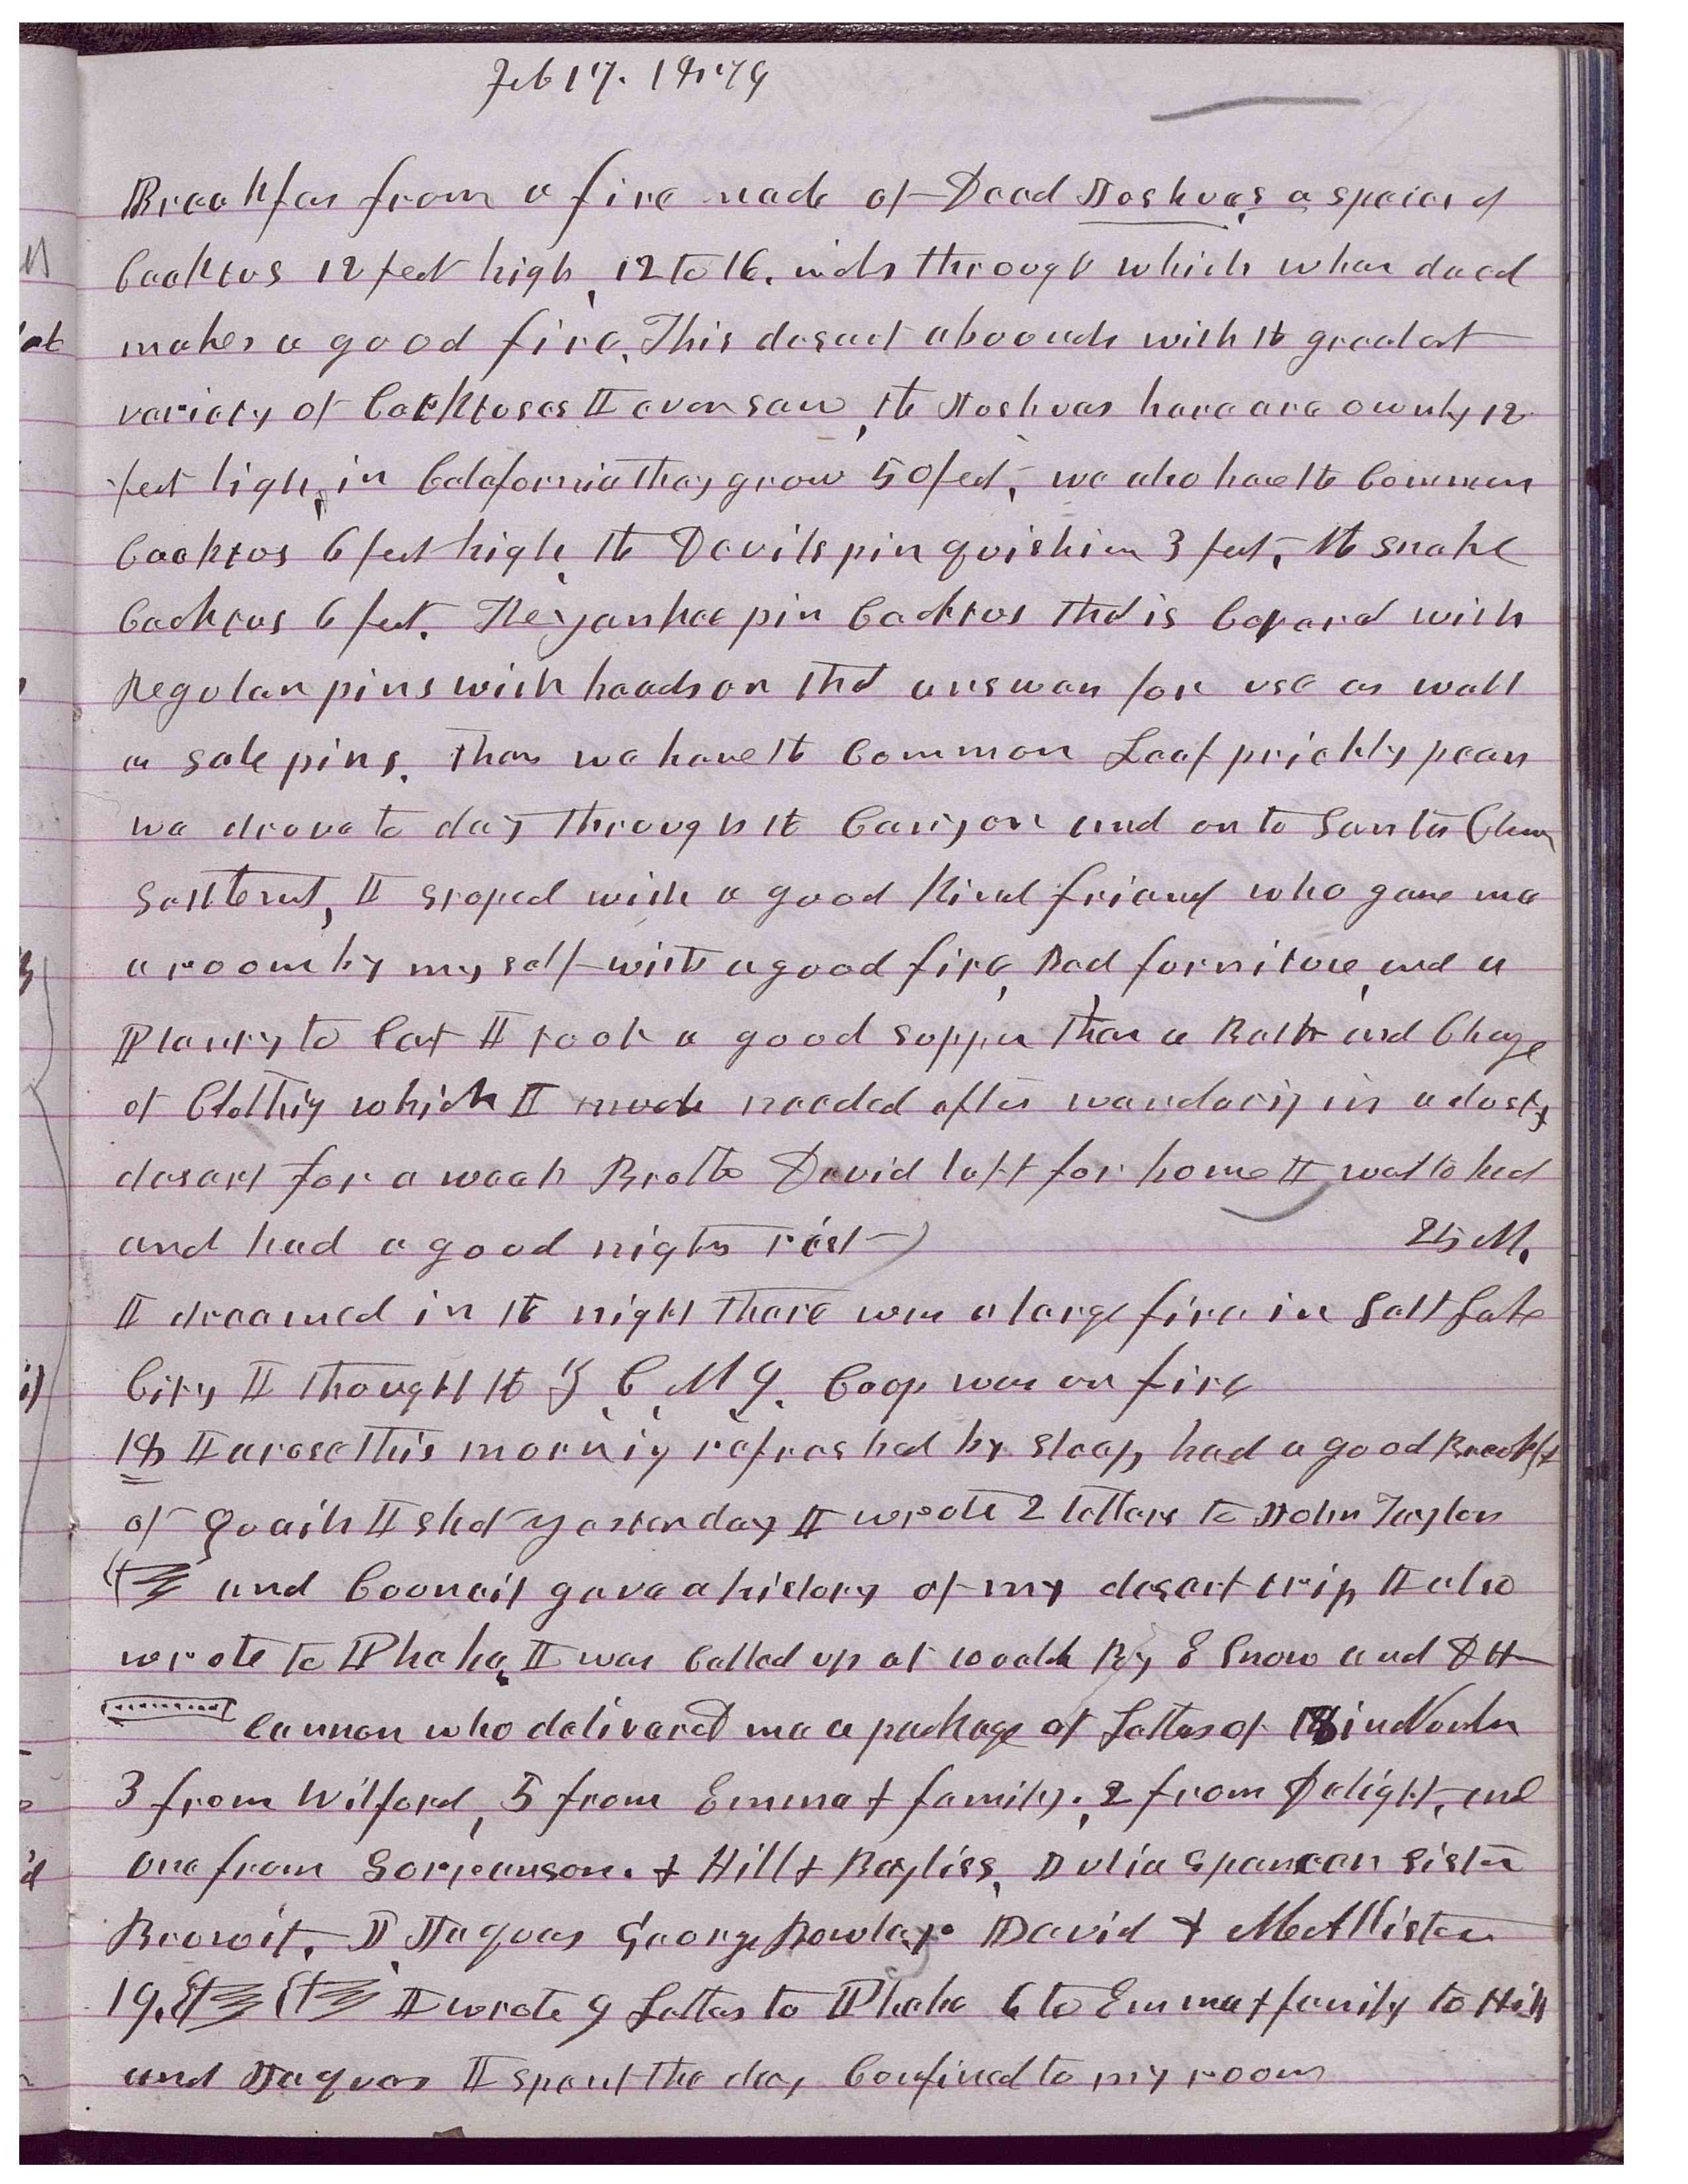 Feb 17. 1879
Breakfas from a fire made of Dead Joshuas, a species of
Cacktus 12 feet high, 12 to 16. inch through which when dead
makes a good fire. This desart abounds with the greatest
variety of Cacktuses I ever saw, the Joshuas here are ownly 12
feet high, in Calafornia they grow 50 feet, we also have the Common
Cacktus 6 feet high, the Devils pin quishion 3 feet, the snake
Cacktus 6 feet. The yankee pin Cacktus that is Covered with
Regular pins with heads on that answer for use as well
as sale pins. Then we have the Common Leaf prickly pear
we drove to day through the Canyon and on to Santa Clara
Settlemet, I stoped with a good Kind friend who gave me
a room by my self with a good fire, Bed furniture, and a
Plenty to Eat I took a good supper then a Bath and Change
of Clothing which I much needed after wandering in a dosty
desart for a week Brother David left for home I went to bed
and had a good nights rest 25 M.
I dreamed in the night there was a large fire in Salt Lake
City I thought the Z C M I. Coop was on fire
18 I arose this morning refreshed by sleep, had a good Breakfst
of Quails I shot yesterday I wrote 2 letters to John Taylor
and Council gave a history of my desert trip I also
wrote to Phebe, I was Called up at 10 oclok By E Snow and D H
Cannon who delivered me a package of Letters of 18 in Number
3 from Wilford, 5 from Emma & family, 2 from Delight, and
one from Sorpenson. & Hill & Bayliss, Julia Spencer Sister
Benoit, J Jaques George Rowley. David & McAllister
19. I wrote 9 Letters to Phebe 6 to Emma & family to Hill
and Jaques I spent the day Confined to my room